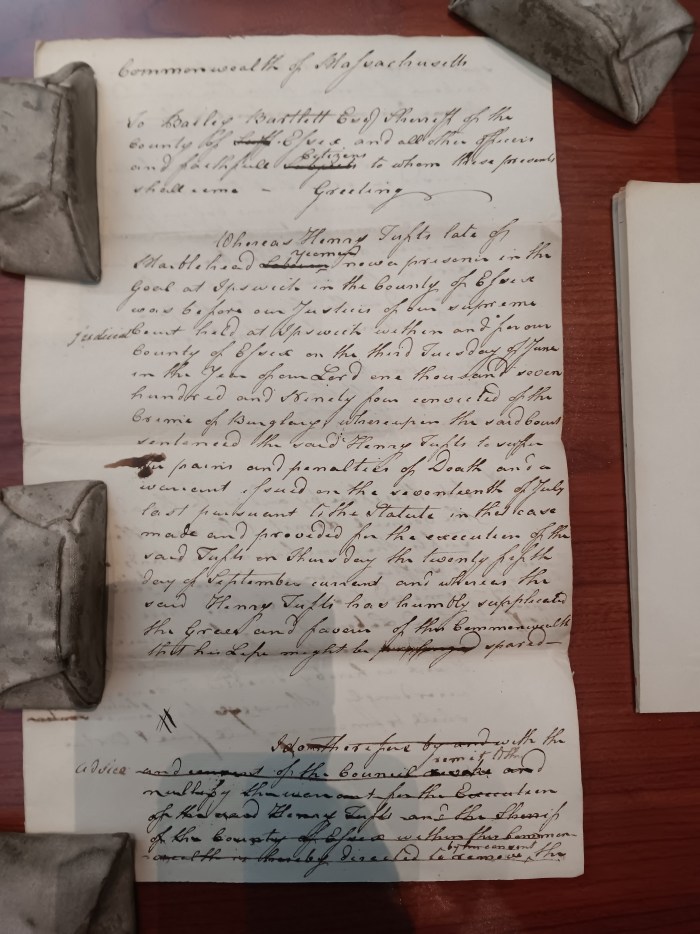 Commonwealth of Massachusetts
To Bailey Bartlett Esqr Sheriff of the
County of Essex and all other officers
and faithfull Citizens to whom these presents
shall come - Greeting
Whereas Henry Tufts late of
Marblehead yeoman now a presoner in the
Goal at Ipswich in the County of Essex
was before our Justices of our supreme
judicial Court held at Ipswich within and for our
County of Essex on the third Tuesday of June
in the Year of our Lord one thousand seven
hundred and Ninety four convicted of the
Crime of Burglary, whereupon the said Court
sentenced the said Henry Tufts to suffer
the pains and penalties of Death and a
warrant issued on the seventeenth of July
last pursuant to the Statute in this case
made and provided for the execution of the
said Tufts on Thursday the twenty fifth
day of September current and whereas the
said Henry Tufts has humbly supplicated
the Grace and favour of this Commonwealth
that his Life might be spared-
I do Therefore by and with the
remit
advice and consent of the Council revoke and
nullify the warrant for the Execution
of the said Henry Tufts and the Sheriff
of the County of Essex within this Common-
wealth is thereby directed to remove the